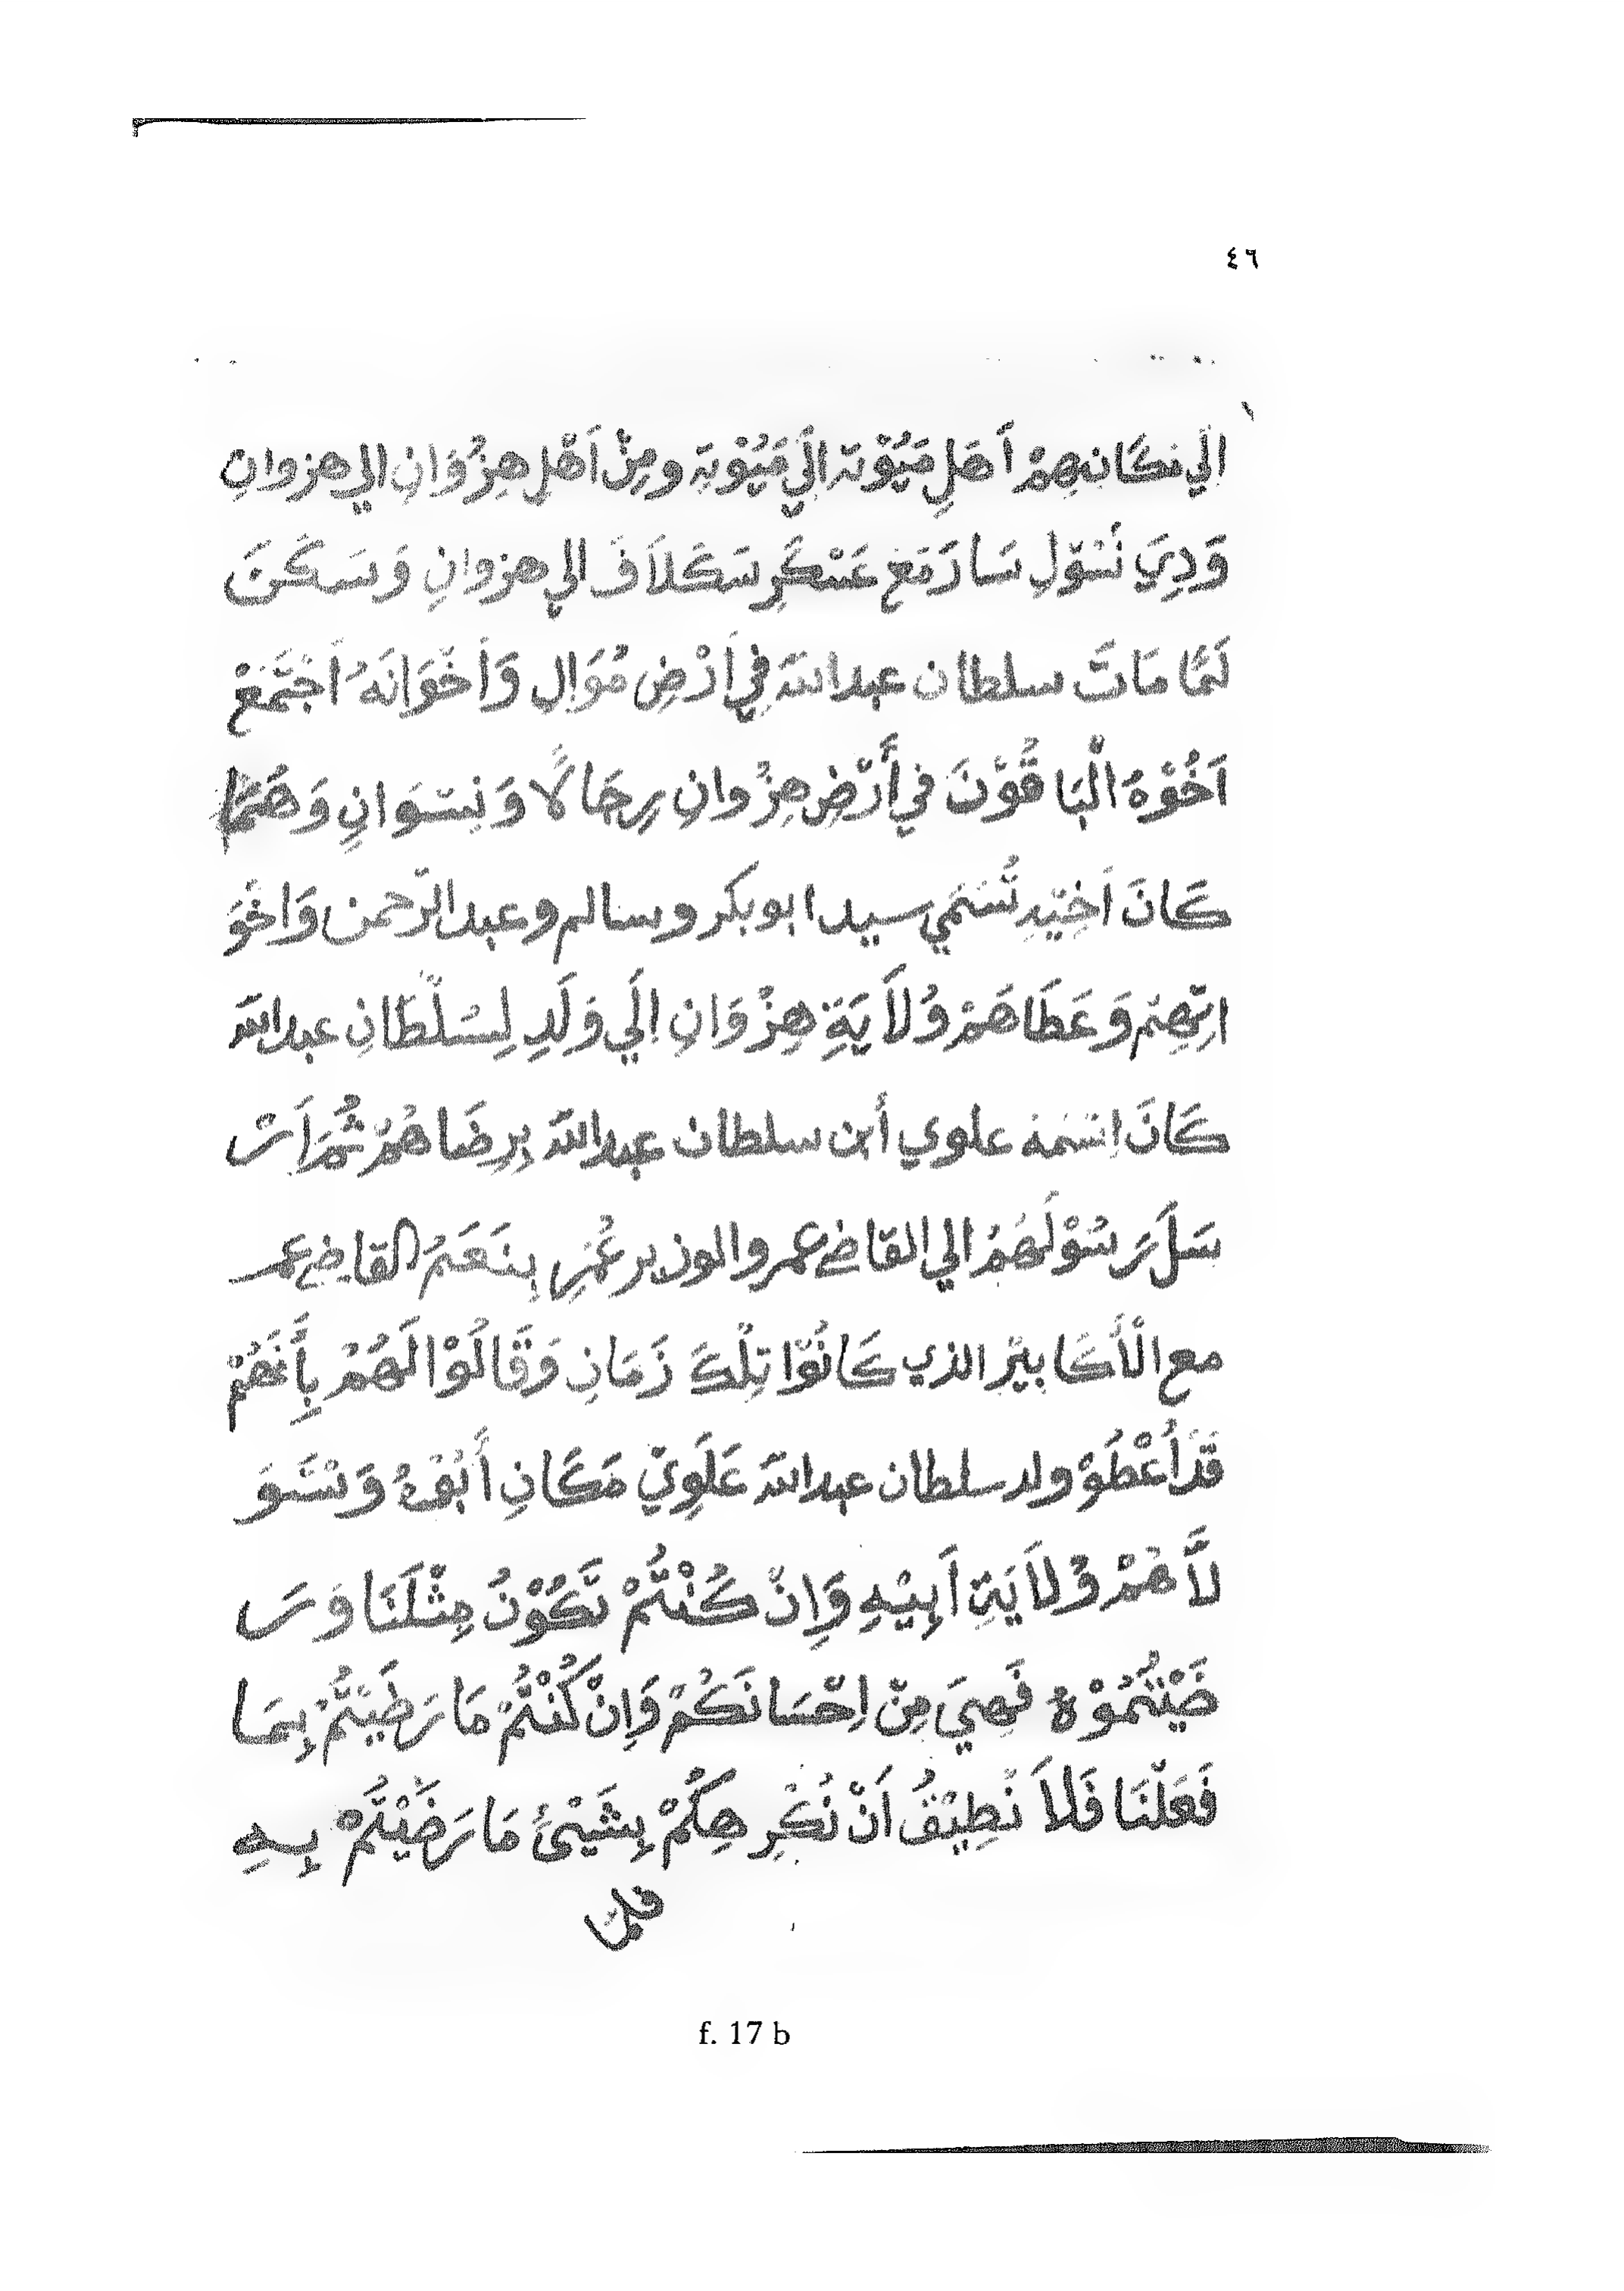 ٤٦
اِلَي مَكَانِهِمْ اَهَلِ مَيُوْتَة اِلَي مَيُوْتَة ومِنْ اَهْلِ هِزُوَانِ الي هزوانِ
وَدِيَ نَسْوَلِ سَارَ مَعَ عَسْكَرِ سَكَلاَفَ الي هزوانِ وَسَكَنَ
لَمَّا مَاتَ سلطان عبدالله فِي اَرْضِ مُوَالِ وَاَخَوَانَهُ اَجْتَمَعْ
اَخُوْهُ الْبَاقُوْنَ فِي أَرْضِ هِزُوانِ رِجَالًا وَنِسْوَانِ وَهُمَا
كَانَ اَخِيْدِ تُسَمَي سيد ابوبكر وسالم وعبدالرّحمن وَاخْوَ
اتِهِمْ وَعَطَاهَمْ وُلاَيَةِ هِزْوَانِ اِلَي وَلَدِ لِسُلْطَانِ عبدالله
كَانَ اِسْمَهُ علوي أبن سلطان عبدالله بِرِضَاهُمْ ثُمَّ اَرْ
سَلَ رَسُوْلَهُمْ الي القاضے عمر والوزير عُمَرِ بِنَعَمُ القاضے عمر
مع الْأَكَابِيْرِ الذي كَانُوْا تِلْكَ زَمَانِ وَقَالُوْا لَهُمْ بِأَنَهُمْ
قَدْ اُعْطُوْ ولد سلطان عبدالله عَلَوِيْ مَكَانِ أَبُوْهُ وَسْتَوَ
لاَّ هُمْ وُلاَيَةِ اَبِيْهِ وَاِنْ كُنْتُمْ تَكُوْنُ مِثْلَنَا وَرَ
ضَيْتُمُوْهُ فَهِيَ مِنْ اِحْسَانَكُمْ وَاِنْ كُنْتُمْ مَا رَظَيْتُمْ بِمَا
فَعَلْنَا فَلاَ نُطِيْقُ اَنْ نُكْرِهِكُمْ بِشَيْئُ مَا رَضَيْتُمْ بِهِ
فلمّا
f. 17 b